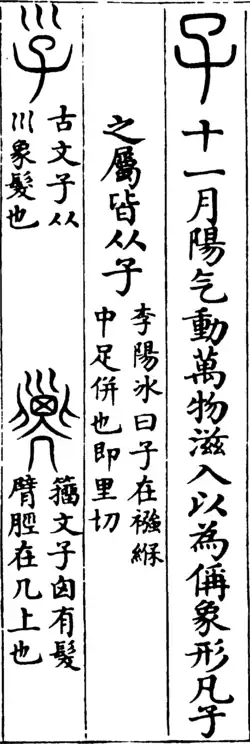 子十一月陽气動萬物滋入以為偁象形凡子
之屬皆从子
李陽冰曰子在襁緥
中足併也即里切
㜽
古文子从
川象髮也
籒文子囟有髮
臂脛在几上也